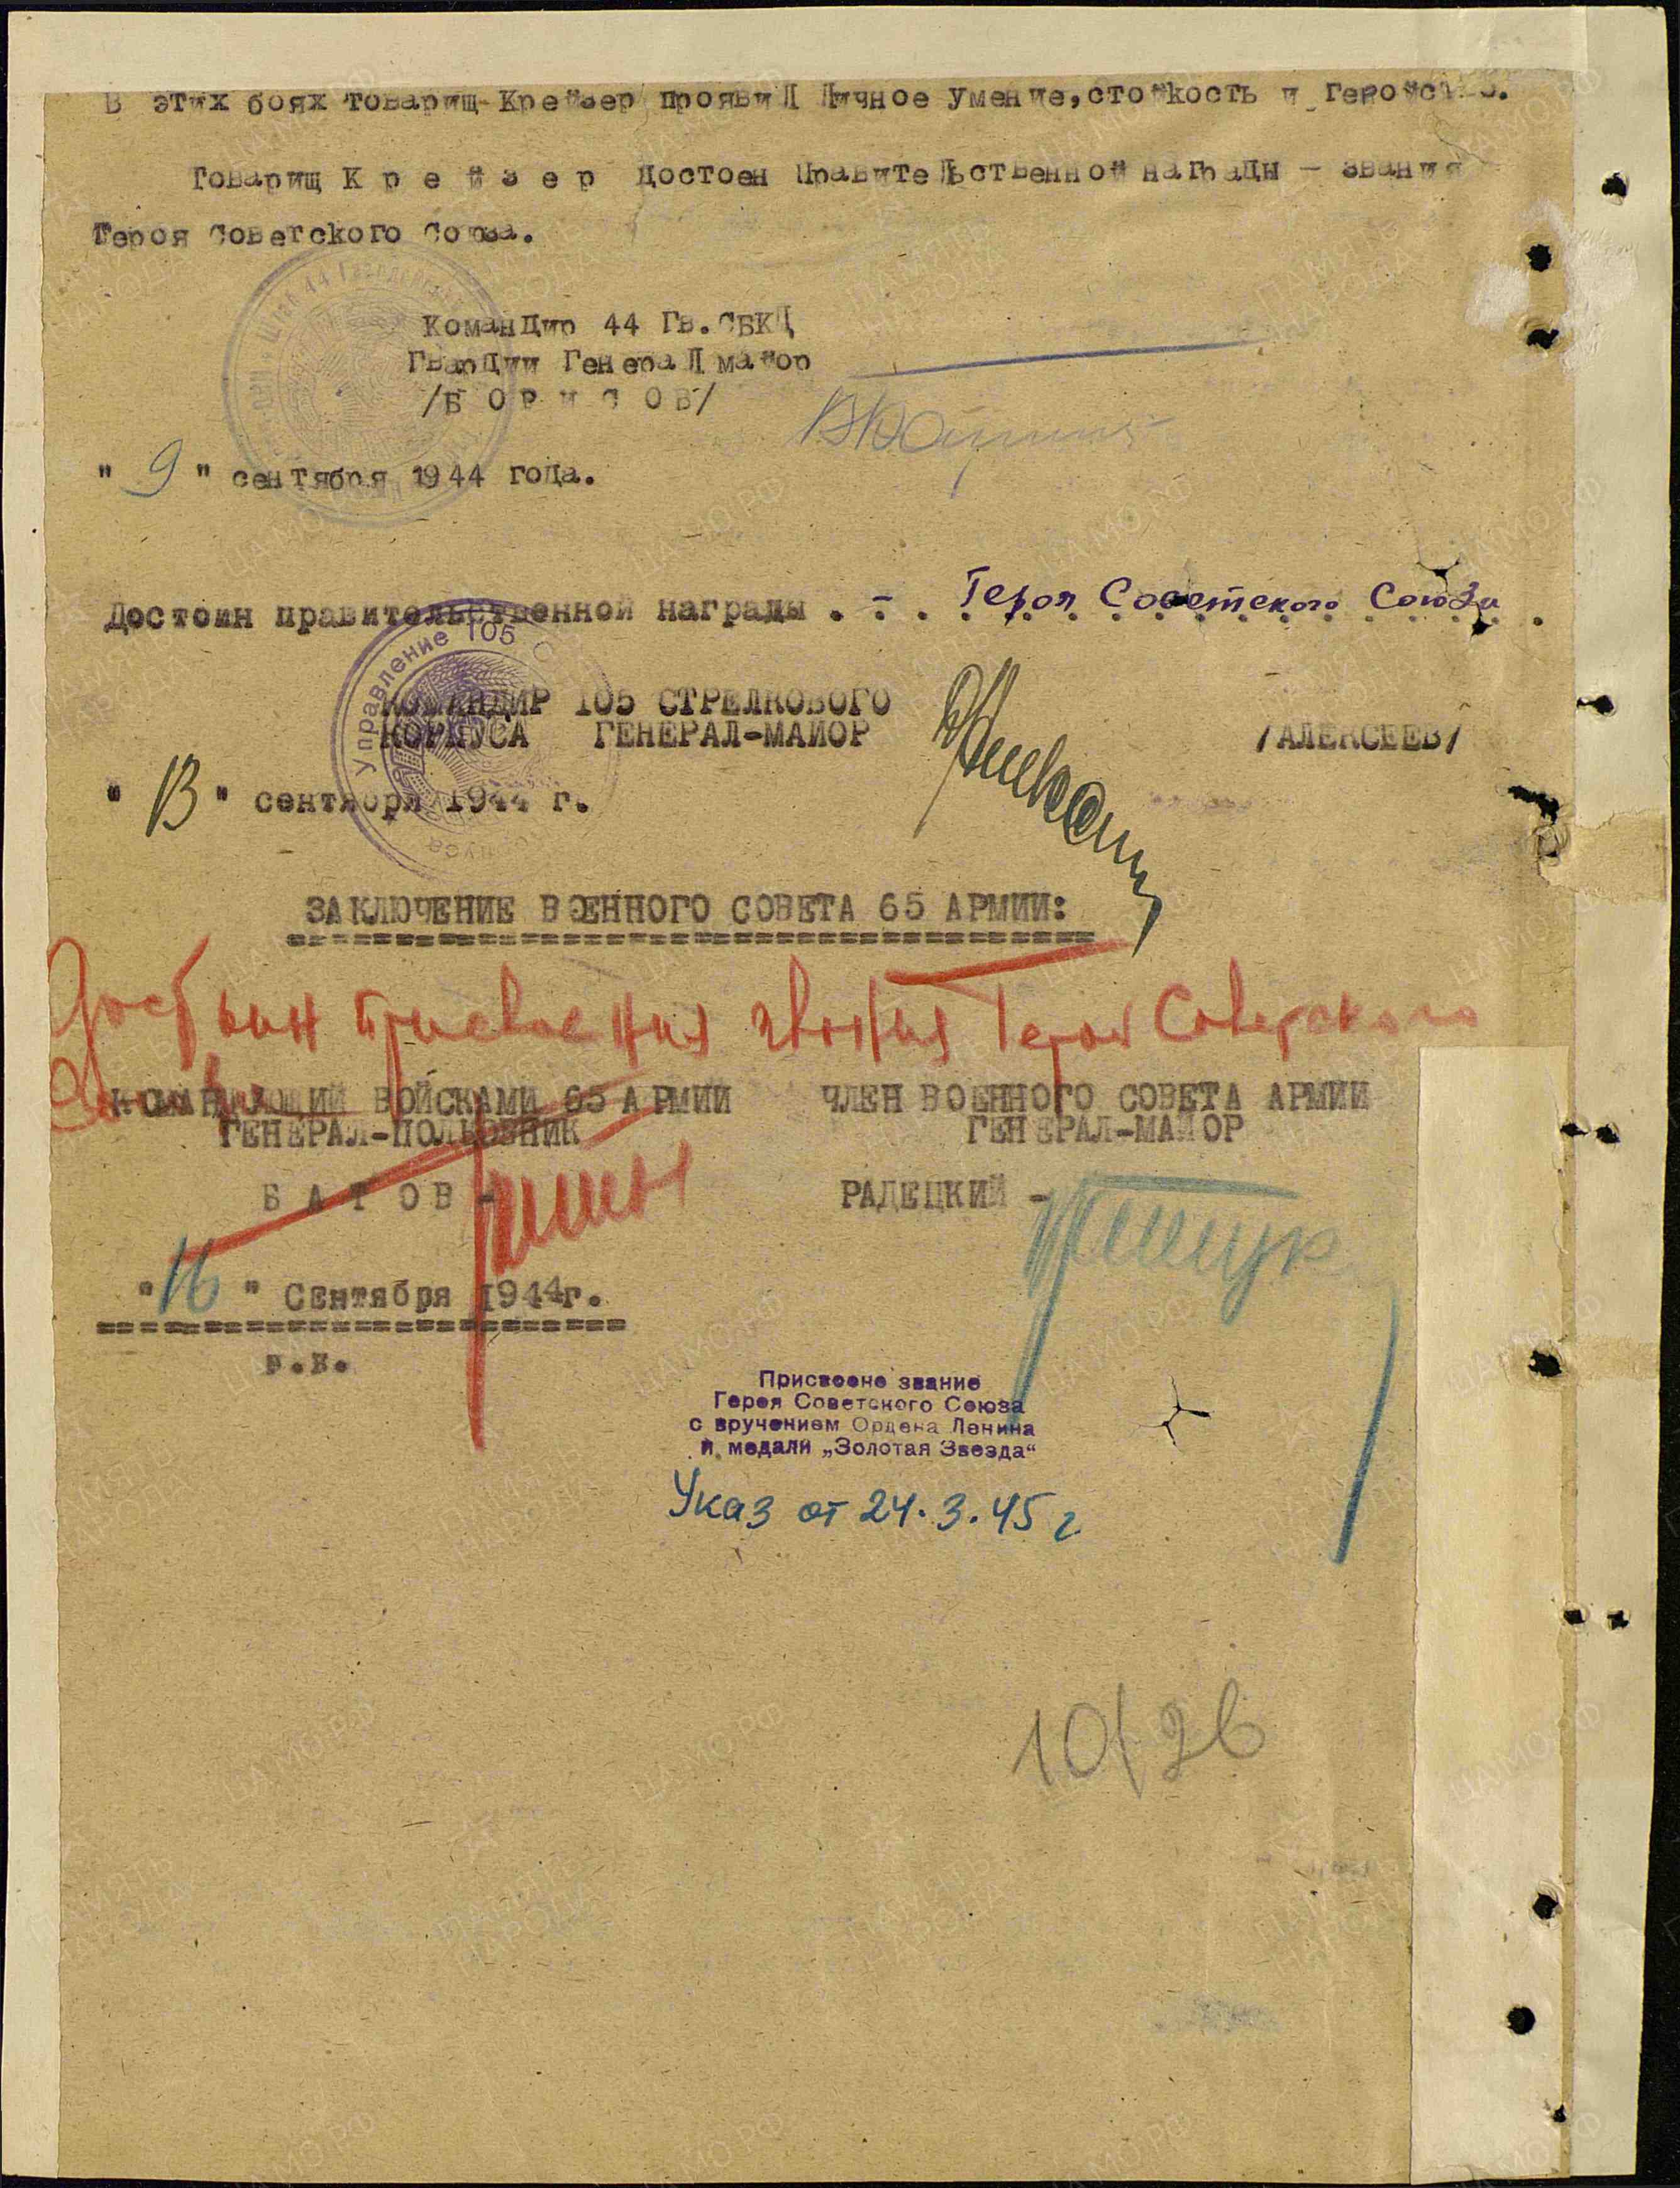 В этих боях товарищ Крейзер проявил личное умение, стойкость и геройство.
Товарищ К р е й з е р достоен Правительственной награды – звания
Героя Советского Союза.
Командир 44 Гв. СБКД
Гвардии Генерал майор
/Б О Р И С О В/
" 9 " сентября 1944 года.
Достоин правительственной награды . – . Героя Советского Союза
Управление 105
КОМАНДИР 105 СТРЕЛКОВОГО
КОРПУСА ГЕНЕРАЛ-МАЙОР /АЛЕКСЕЕВ/
" 13 " сентября 1944 г.
ЗАКЛЮЧЕНИЕ ВОЕННОГО СОВЕТА 65 АРМИИ:
Достоин присвоения звания Героя Советского
Союза
КОМАНДУЮЩИЙ ВОЙСКАМИ 65 АРМИИ ЧЛЕН ВОЕННОГО СОВЕТА АРМИИ
ГЕНЕРАЛ-ПОЛКОВНИК ГЕНЕРАЛ-МАЙОР
Б А Т О В – РАДЕЦКИЙ –
" 16 " Сентября 1944г.
Присвоено звание
Героя Советского Союза
с вручением Ордена Ленина
и медали „Золотая Звезда“
Указ от 24.3.45 г.
10/26